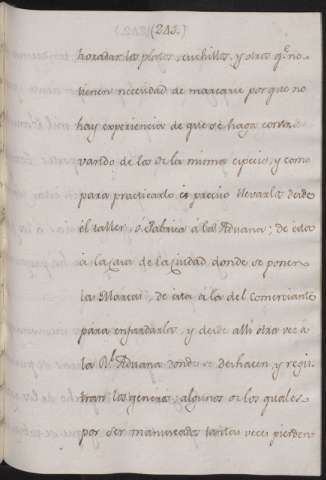 (243.)
horadar las platos, cuchillos, y otras qe. no
tienen necesidad de marcarse por que no
hay experiencia de que se haga contra-
vando de los de la misma especie, y como
para practicarlo es preciso llevarlas desde
el taller, o Fabrica à la Aduana; de esta
à la Casa de la Ciudad donde se ponen
las Marcas, de esta à la del Comerciante
para enfardarlas, y desde alli otra vez à
la Rl. Aduana donde se deshacen, y regis-
tran los generos; algunos de los quales
por ser manuseados tantas veces pierden